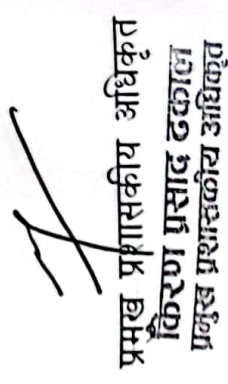 प्रमुख प्रशासकीय अधिकृत
किरण प्रसाद ढकाल
प्रमुख प्रशासकीय अधिकृत